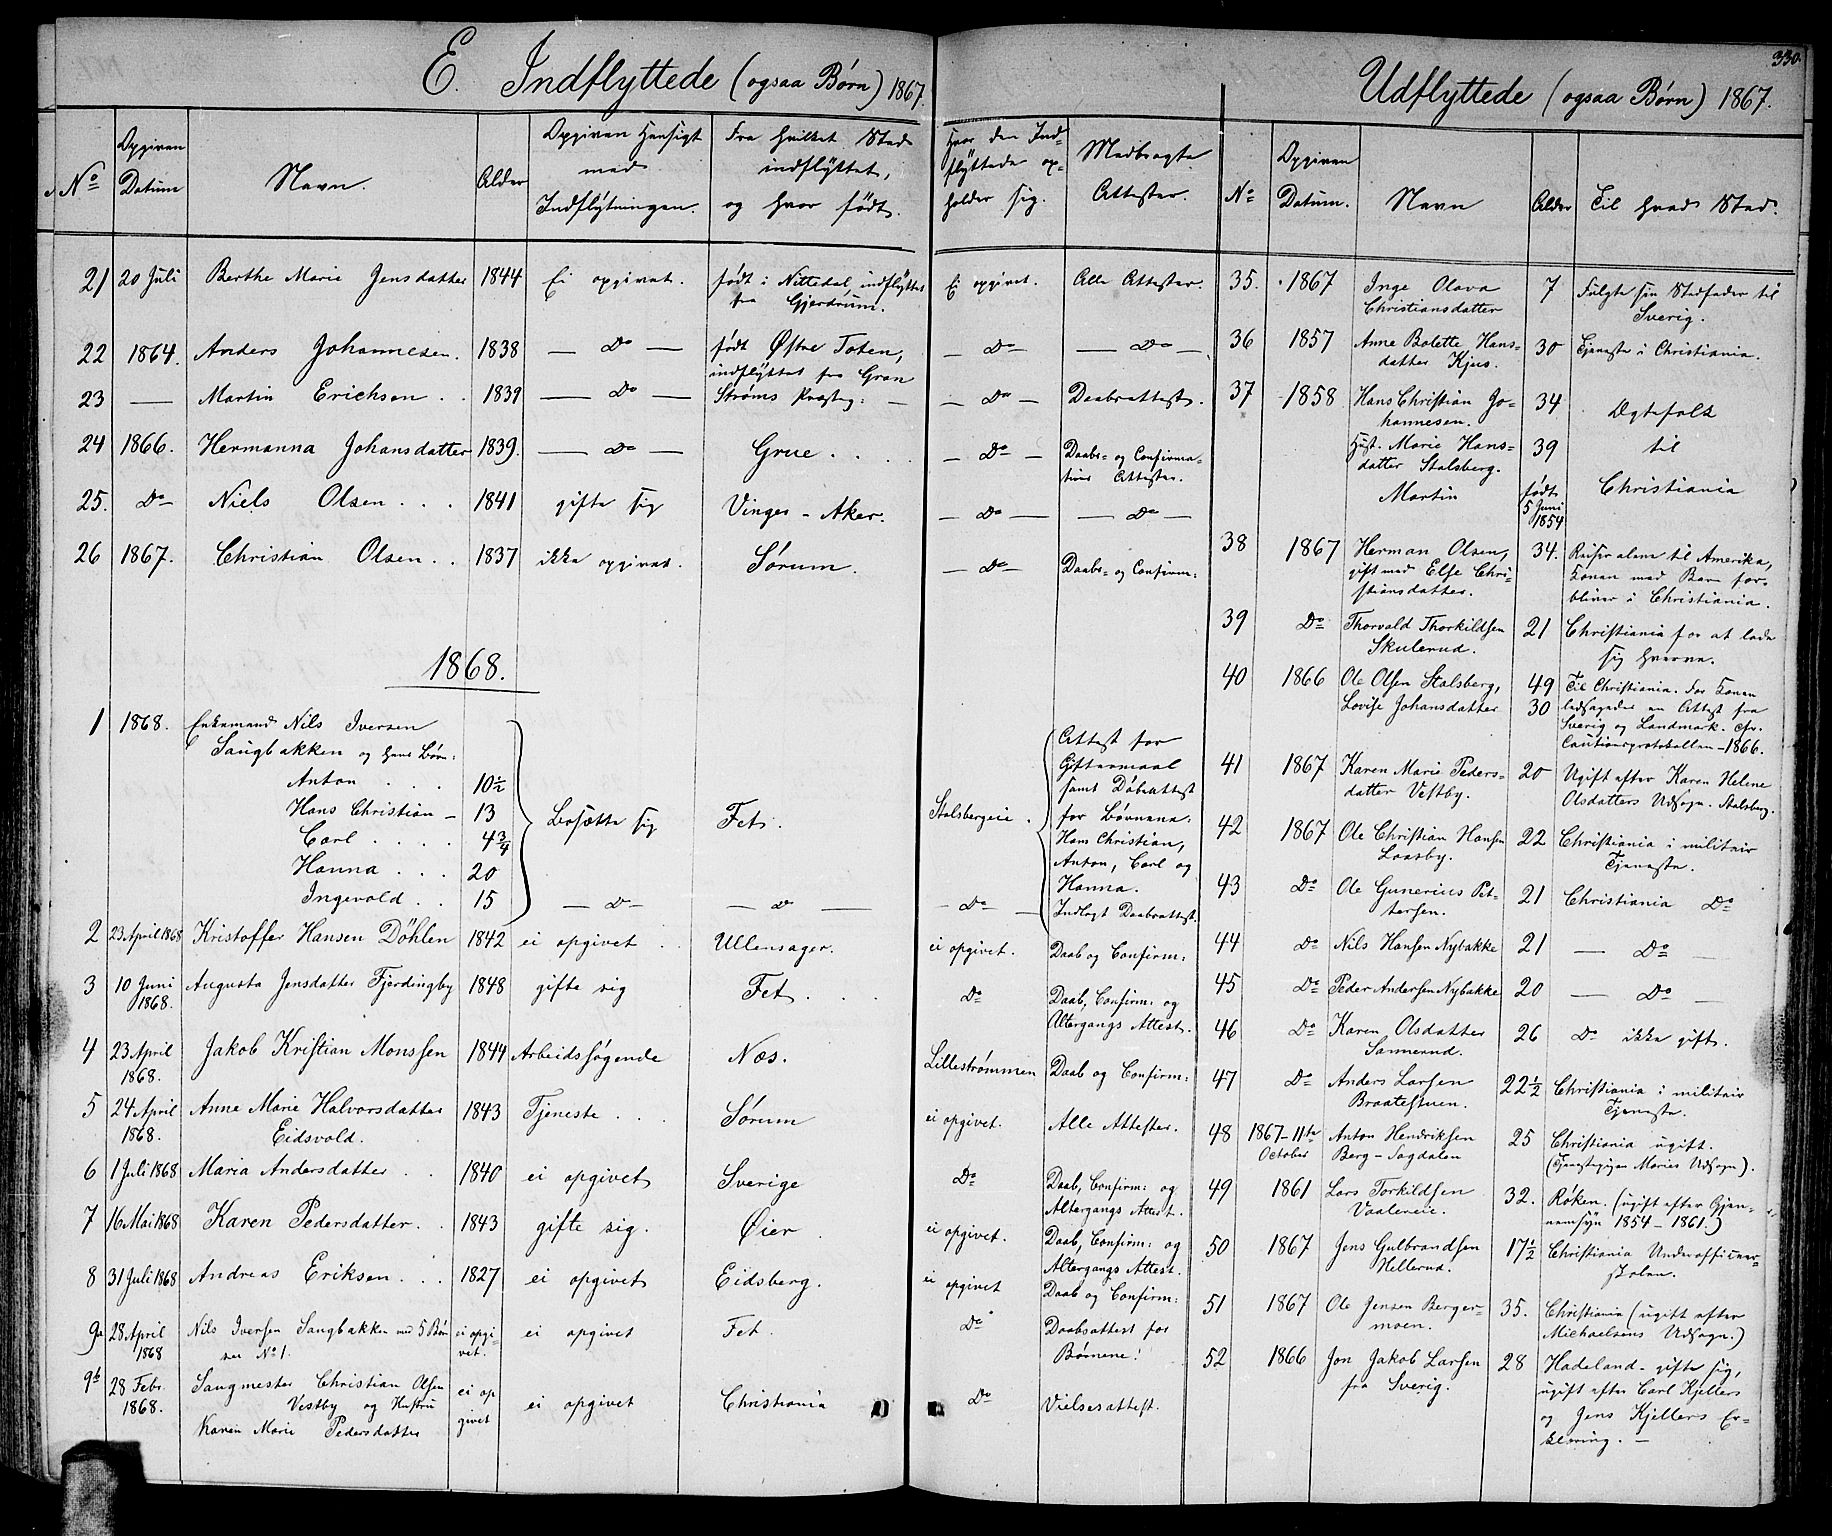 330.
E. Indflyttede (ogsaa Børn) 1867.
No
Opgiven Datum
Navn.
Alder
Opgiven Hensigt med Indflytningen.
Fra hvilket Sted indflyttet, og hvor født.
Hvor den Indflyttede opholder sig.
Medbragte Attester.
21 20 Juli Berthe Marie Jensdatter 1844 Ei opgivet. født i Nittedal, indflyttet fra Gjerdrum. Ei opgivet. Alle Attester.
22 1864. Anders Johannesen. 1838 — Do — født Østre Toten, indflyttet fra Gran — Do — — Do —
23 — Martin Erichsen . . 1839 — Do — Strøms Præsteg: — — Do — Daabsattest.
24 1866. Hermanna Johansdatter 1839. — Do — Grue . . . — Do — Daabs- og Confirmations Attester.
25. Do Niels Olsen . . . 1841 gifte sig Vinger - Aker. — Do — — Do —
26 1867. Christian Olsen . . 1837 ikke opgivet. Sørum. — Do — Daabs- og Confirm:
1868.
1 1868. Enkemand Nils Iversen
Saugbakken og hans Børn:
Anton . . . 10½
Hans Christian — 13
Carl . . . . 4¾
Hanna . . . 20
Ingevold . . 15
Bosætte sig Fet. Stalsbergeie.
— D — — D — — Do —
Attest for
Giftermaal
samt Døbeattest
for Børnene.
Hans Christian,
Anton, Carl og
Hanna.
Indlagt Daabsattest.
2 23 April 1868 Kristoffer Hansen Döhlen 1842 ei opgivet . Ullensager. ei opgivet. Daab og Confirm:
3 10 Juni 1868. Augusta Jensdatter Fjerdingby 1848 gifte sig Fet . . . Do Daab, Confirm: og Altergangs Attest.
4 23 April 1868. Jakob Kristian Monssen 1844 Arbeidssøgende Næs. Lillestrømmen Daab og Confirm:
5 24 April 1868. Anne Marie Halvorsdatter Eidsvold. 1843 Tjeneste . . Sørum ei opgivet. Alle Attester.
6 1 Juli 1868 Maria Andersdatter . . 1840 ei opgivet Sverige Do Daab, Confirm: og Altergangs Attest.
7 16 Mai 1868 Karen Pedersdatter . . 1843 gifte sig. Øier ei opgivet. Daab, Confirm: og Altergangs Attest.
8 31 Juli 1868 Andreas Eriksen . . . 1827 ei opgivet Eidsberg. ei opgivet Daab og Confirm:
9a 28 April 1868 Nils Iversen Saugbakken med 5 Børn see No 1. ei opgivet. ei opgivet Fet. Do Daabsattest for Børnene!
9b 28 Febr. 1868. Saugmester Christian Olsen Vestby og Hustru Karen Marie Pedersdatter ei opgivet ei opgivet Christiania Do Vielsesattest.
Udflyttede (ogsaa Børn) 1867.
No
Opgiven Datum.
Navn
Alder
Til hvad Sted.
35. 1867 Inge Olava Christiansdatter 7 Fulgte sin Stedfader til Sverig.
36 1857 Anne Bolette Hansdatter Kjus. 30 Tjeneste i Christiania.
37 1858 Hans Christian Johannesen. 34
Hust. Marie Hansdatter Stalsberg. 39
Martin født 5 Juni 1854
Ægtefolk
til
Christiania
38 1867 Herman Olsen, gift med Else Christiansdatter. 34. Reiser alene til Amerika, Konen med Barn forbliver i Christiania.
39 Do Thorvald Thorkildsen Skulerud. 21 Christiania for at lade sig hverve.
40 1866 Ole Olsen Stalsberg, 49
Lovise Johansdatter 30
Til Christiania. For Konen
ledsagedes en Attest fra
Sverig og Landmark. Cfr.
Cautionsprotokollen - 1866.
41 1867 Karen Marie Pedersdatter Vestby. 20 Ugift efter Karen Helene Olsdatters Udsagn. Stalsberg.
42 1867 Ole Christian Hansen Laasby. 22 Christiania i militair Tjeneste.
43 Do Ole Gunerius Pettersen. 21 Christiania Do
44 Do Nils Hansen Nybakke 21 — Do —
45 Do Peder Andersen Nybakke 20 — Do —
46 Do Karen Olsdatter Sannerud. 26 Do ikke gift.
47 Do Anders Larsen Braatestuen. 22½ Christiania i militair Tjeneste.
48 1867-11te October Anton Hendriksen Berg-Sagdalen 25 Christiania ugift. (Tjenestepigen Maries Udsagn).
49 1861 Lars Torkildsen Vaalereie. 32. Røken. (ugift efter Gjennemsyn 1854 - 1861.)
50 1867 Jens Gulbrandsen Hellerud. 17½ Christiania Underofficeerskolen.
51 1867 Ole Jensen Bergermoen. 35. Christiania (ugift efter Michaelsens Udsagn.)
52 1866 Jon Jakob Larsen fra Sverig. 28 Hadeland - gifte sig, ugift efter Carl Kjellers og Jens Kjellers Erklæring. —